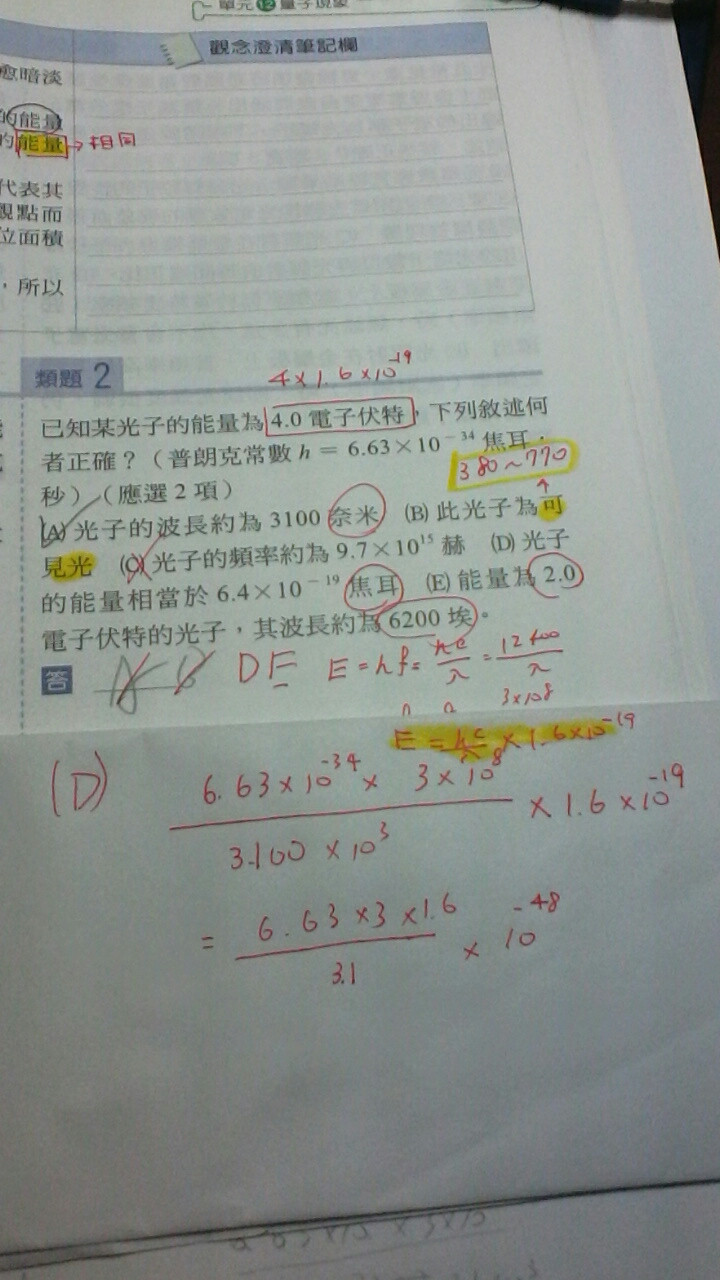 單元 12 量子現象
觀念澄清筆記欄
愈暗淡
的能量
的能量→相同
代表其
觀點而
位面積
，所以
類題 2
4×1.6×10⁻¹⁹
已知某光子的能量為 4.0 電子伏特，下列敘述何
者正確？（普朗克常數 h = 6.63×10⁻³⁴ 焦耳．
380～770
秒）（應選 2 項）
(A) 光子的波長約為 3100 奈米 (B) 此光子為可
見光 (C) 光子的頻率約為 9.7×10¹⁵ 赫 (D) 光子
的能量相當於 6.4×10⁻¹⁹ 焦耳 (E) 能量為 2.0
電子伏特的光子，其波長約為 6200 埃。
答 DE E = hf = hc/λ = 12400/λ
3×10⁸
E = hc/λ × 1.6×10⁻¹⁹
(D) 6.63×10⁻³⁴ × 3×10⁸
× 1.6×10⁻¹⁹
3.100 × 10³
= 6.63×3×1.6
× 10⁻⁴⁸
3.1